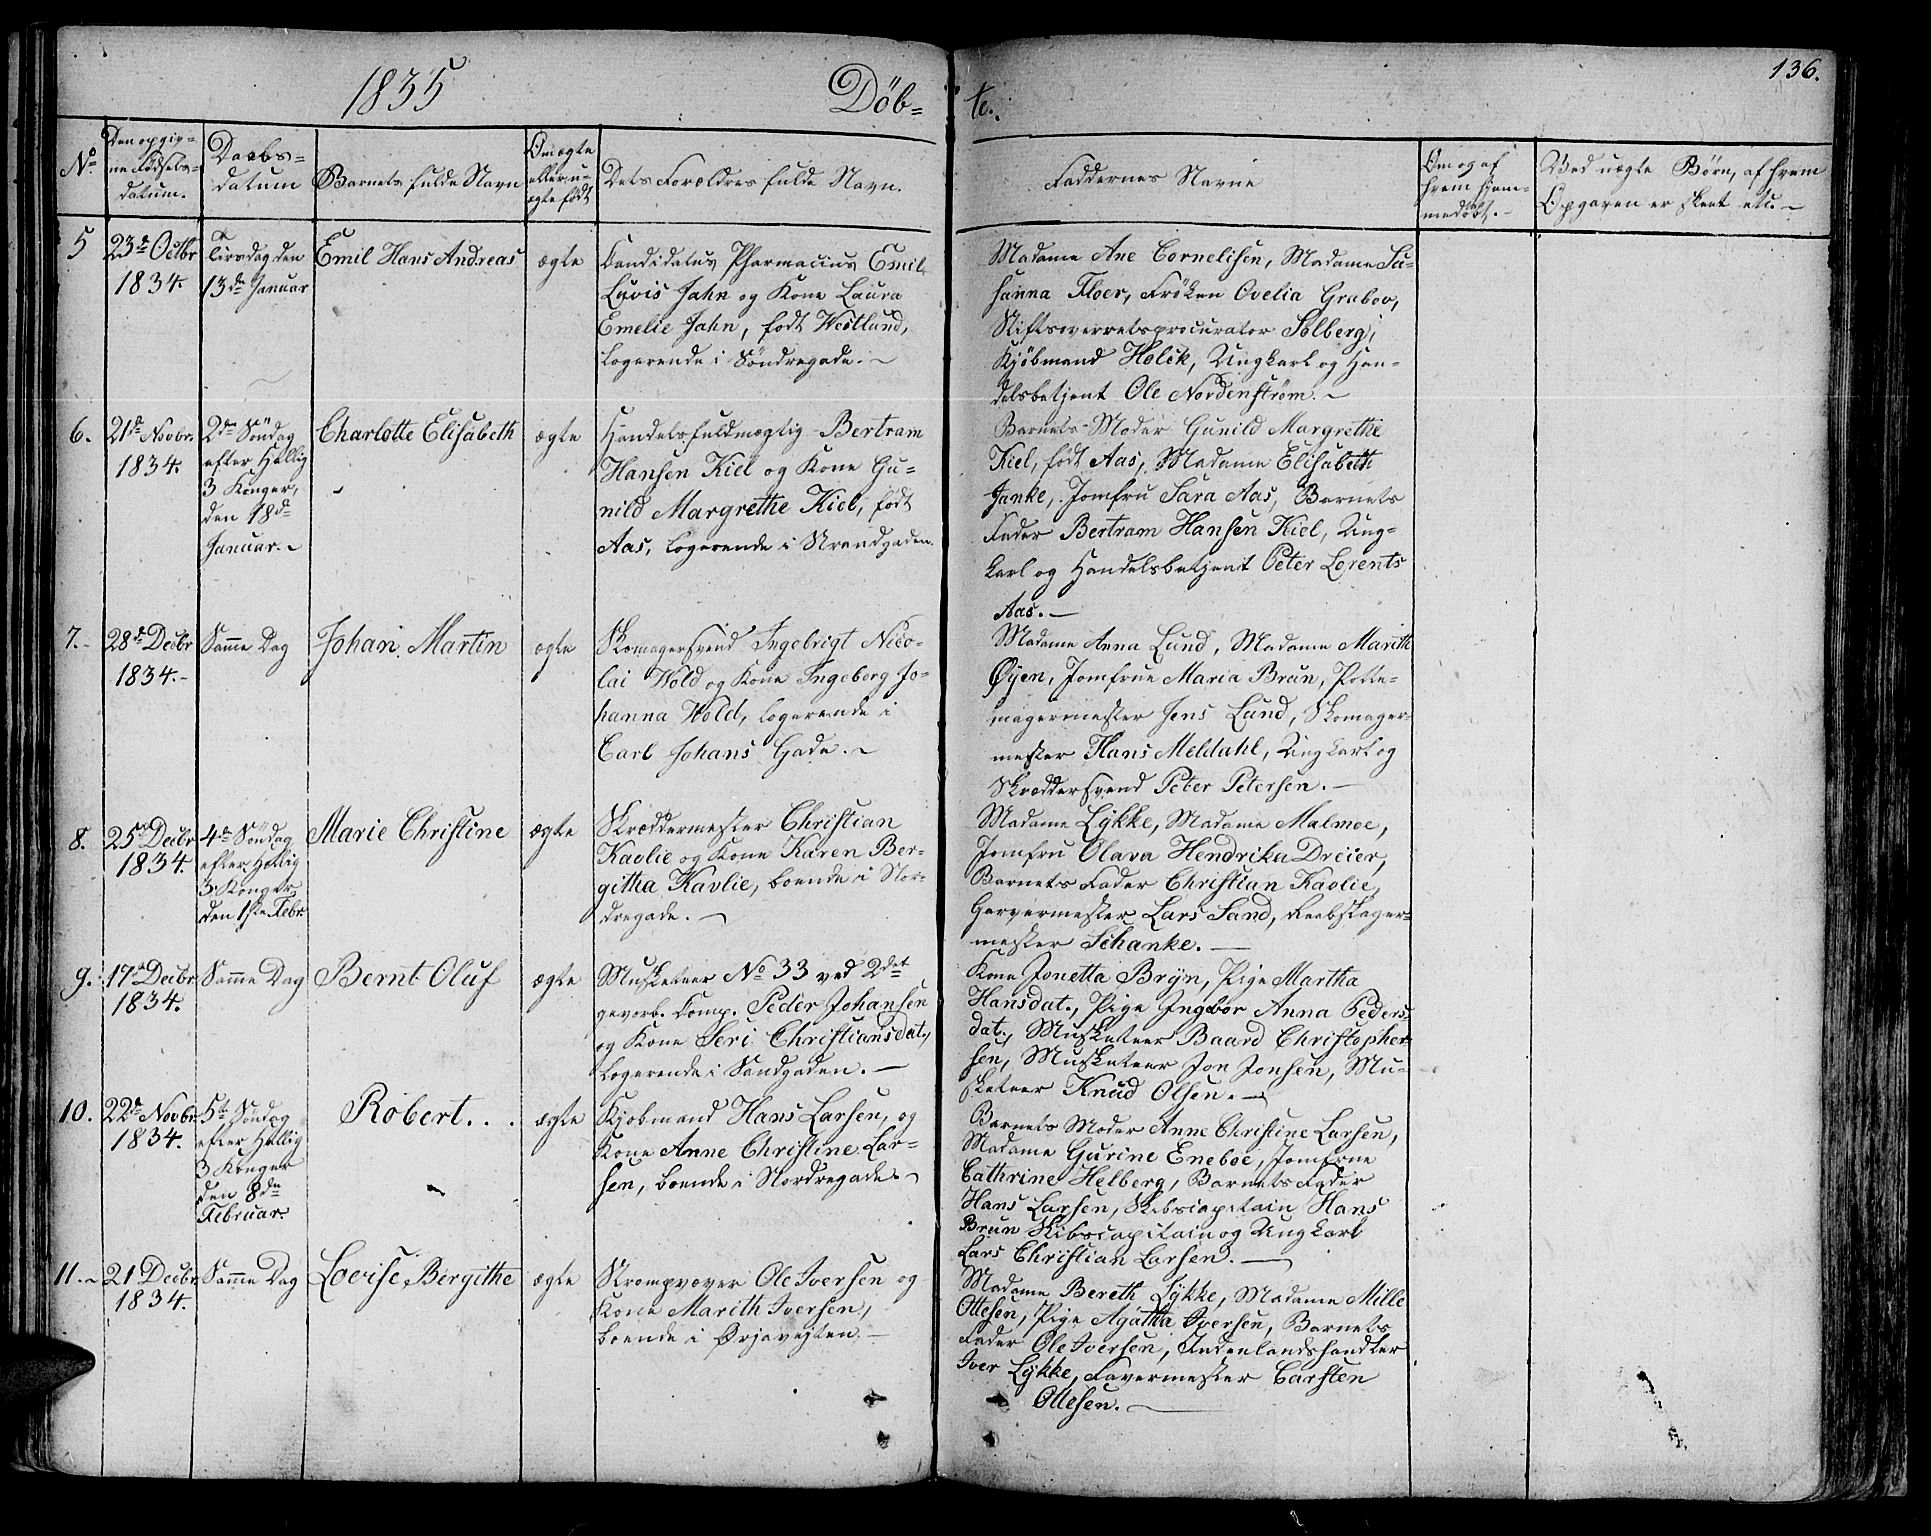 1835 Döb=
te.
136.
No
Den opgiv=
ne Födsels=
datum.
Daabs=
datum
Barnets fulde Navn
Om ægte
eller u=
ægte födt
Dets Forældres fulde Navn.
Faddernes Navne
Om og af
hvem hjem=
medöbt.
Ved uægte Börn, af hvem
Opgaven er skeet etc. ~
5
23de Octbr
1834.
Tirsdag den
13de Januar
Emil Hans Andreas
ægte
Candidatus Pharmacius Emil
Luvis Jahn og Kone Laura
Emelie Jahn, født Westlund,
logerende i Söndregade. ~
Madame Ane Cornelisen, Madame Su=
sanna Floer, Fröken Ovelia Grabov,
Stiftsoverretsprocurator Solberg,
Kjöbmand Holck, Ungkarl og Han=
delsbetjent Ole Nordenström. ~
6.
21de Novbr.
1834.
2den Söndag
efter Hellig
3 Konger,
den 18de
Januar. ~
Charlotte Elisabeth
ægte
Handelsfuldmægtig Bertram
Hansen Kiel og Kone Gu=
nild Margrethe Kiel, født
Aas, logerende i Strandgaden.
Barnets Moder Gunild Margrethe
Kiel, født Aas, Madame Elisabeth
Janke, Jomfru Sara Aas, Barnets
Fader Bertram Hansen Kiel, Ung=
karl og Handelsbetjent Peter Lorents
Aas. —
7. ~
28de Decbr
1834. ~
Samme Dag
Johan Martin
ægte
Skomagersvend Ingebrigt Nico=
lai Wold og Kone Ingeborg Jo=
hanna Wold, logerende i
Carl Johans Gade. ~
Madame Anna Lund, Madame Marith
Øyen, Jomfrue Maria Brun, Potte=
magermester Jens Lund, Skomager=
mester Hans Meldahl, Ungkarl og
Skræddersvend Peter Petersen. —
8.
25de Decbr
1834.
4de Söndag
efter Hellig
3 Konger
den 1ste Febr.
Marie Christine
ægte
Skræddermester Christian
Kavlie og Kone Karen Ber=
githa Kavlie, boende i Nor=
dregade. ~
Madame Lÿkke, Madame Malmoe,
Jomfru Olava Hendrika Dreier,
Barnets Fader Christian Kavlie,
Garvermester Lars Sand, Reebslager=
mester Schanke. —
9.
17de Decbr
1834.
Samme Dag
Bernt Oluf
ægte
Musketeer No 33 ved 2det
gevorb. Comp. Peder Johansen
og Kone Seri Christiansdat.,
logerende i Sandgaden. —
Kone Jonetta Brÿn, Pige Martha
Hansdat., Pige Ingebor Anna Peders=
dat., Musketeer Baard Christopher=
sen, Musketeer Jon Jonsen, Mu=
sketeer Knud Olsen. —
10.
22de Novbr.
1834.
5te Söndag
efter Hellig
3 Konger
den 8de
Februar.
Robert. . .
ægte
Kjøbmand Hans Larsen, og
Kone Anne Christine Lar=
sen, boende i Nordregade. ~
Barnets Moder Anne Christine Larsen,
Madame Gurine Eneboe, Jomfrue
Cathrine Helberg, Barnets Fader
Hans Larsen, Skibscapitain Hans
Brun Skibscapitain og Ungkarl
Lars Christian Larsen. —
11. ~
21 Decbr.
1834.
Samme Dag
Lovise Bergithe
ægte
Strompvæver Ole Iversen og
Kone Marith Iversen,
boende i Ørjaveiten. —
Madame Bereth Lÿkke, Madame Mille
Ottesen, Pige Agatha Iversen, Barnets
Fader Ole Iversen, Indenlandshandler
Iver Lÿkke, Farvermester Carsten
Ottesen. —